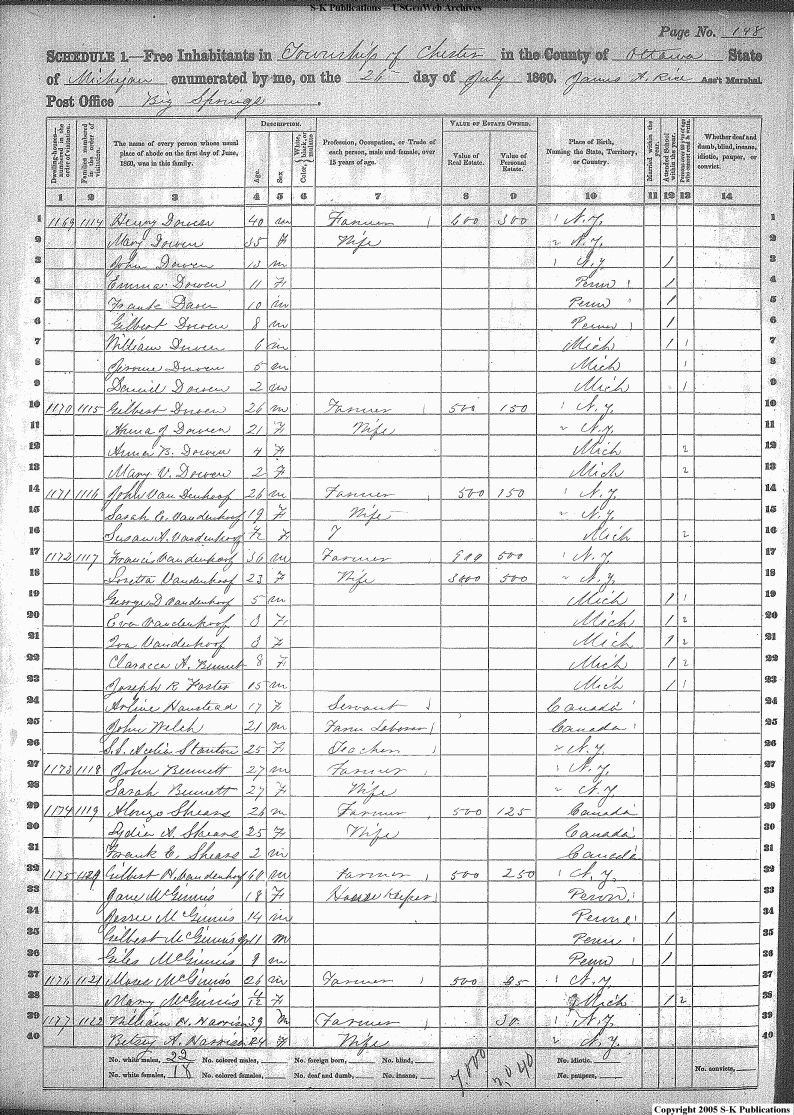 S-K Publications – USGenWeb Archives
Page No. 148
SCHEDULE 1.—Free Inhabitants in Township of Chester in the County of Ottawa State
of Michigan enumerated by me, on the 26 day of July 1860. James A. Rice Ass't Marshal
Post Office Big Springs.
Dwelling-houses—numbered in the order of visitation. Families numbered in the order of visitation. The name of every person whose usual place of abode on the first day of June, 1860, was in this family. DESCRIPTION. Age. Sex Color, White, black, or mulatto Profession, Occupation, or Trade of each person, male and female, over 15 years of age. VALUE OF ESTATE OWNED. Value of Real Estate. Value of Personal Estate. Place of Birth, Naming the State, Territory, or Country. Married within the year. Attended School within the year. Whether deaf and dumb, blind, insane, idiotic, pauper, or convict.
1 2 3 4 5 6 7 8 9 10 11 12 13 14
1 1169 1114 Henry Dowen 40 m Farmer 600 300 1 N.Y. 1
2 Mary Dowen 35 F Wife " N.Y. 2
3 John Dowen 13 m 1 N.Y 1 3
4 Emma Dowen 11 F Penn 1 4
5 Frank Dowen 10 m Penn 1 5
6 Gilbert Dowen 8 m Penn 1 6
7 William Dowen 6 m Mich 1 1 7
8 Jerome Dowen 5 m Mich 1 8
9 Daniel Dowen 2 m Mich 1 9
10 1170 1115 Gilbert Dowen 26 m Farmer 500 150 1 N.Y. 10
11 Anna J Dowen 21 F Wife " N.Y. 11
12 Anna B. Dowen 4 F Mich 2 12
13 Mary V. Dowen 2 F Mich 2 13
14 1171 1116 John Van Denhoof 26 m Farmer 500 150 1 N.Y. 14
15 Sarah E. Vandenhoof 19 F Wife " N.Y. 15
16 Susan A. Vandenhoof F Mich 2 16
17 1172 1117 Francis Vandenhoof 36 m Farmer 500 1 N.Y. 17
18 Losetta Vandenhoof 23 F Wife 3000 500 " N.Y. 18
19 George D Vandenhoof 5 m Mich 1 1 19
20 Eva Vandenhoof 8 F Mich 1 2 20
21 Iva Vandenhoof 8 F Mich 1 2 21
22 A. Bennet 8 F Mich 1 2 22
23 Joseph R Foster 15 m Mich 1 1 23
24 Hanstead 17 F Servant Canada 24
25 John Welch 21 m Farm Laborer Canada 25
26 Stanton 25 F Teacher " N.Y. 26
27 1173 1118 John Bennett 27 m Farmer 1 N.Y. 27
28 Sarah Bennett 27 F Wife " N.Y. 28
29 1174 1119 Alonzo Shears 26 m Farmer 500 125 Canada 29
30 Lydia A. Shears 25 F Wife Canada 30
31 Frank E. Shears 2 m Canada 31
32 1175 1120 Gilbert H. Vandenhoof 60 m Farmer 500 250 1 N.Y. 32
33 Jane McGinnis 18 F House Keeper Penn 33
34 McGinnis 14 m Penn 1 34
35 Gilbert McGinnis 11 m Penn 1 35
36 Giles McGinnis 9 m Penn 1 36
37 1176 1121 Moses McGinnis 26 m Farmer 500 85 1 N.Y. 37
38 Mary McGinnis 4/12 F Mich 1 2 38
39 1177 1122 William H. Harrison 39 m Farmer 30 1 N.Y. 39
40 Betsy A. Harrison 24 F Wife " N.Y. 40
No. white males, 22 No. colored males, No. foreign born, No. blind, No. idiotic,
No. white females, 18 No. colored females, No. deaf and dumb, No. insane, 7.000 2.040 No. paupers, No. convicts,
Copyright 2005 S-K Publications